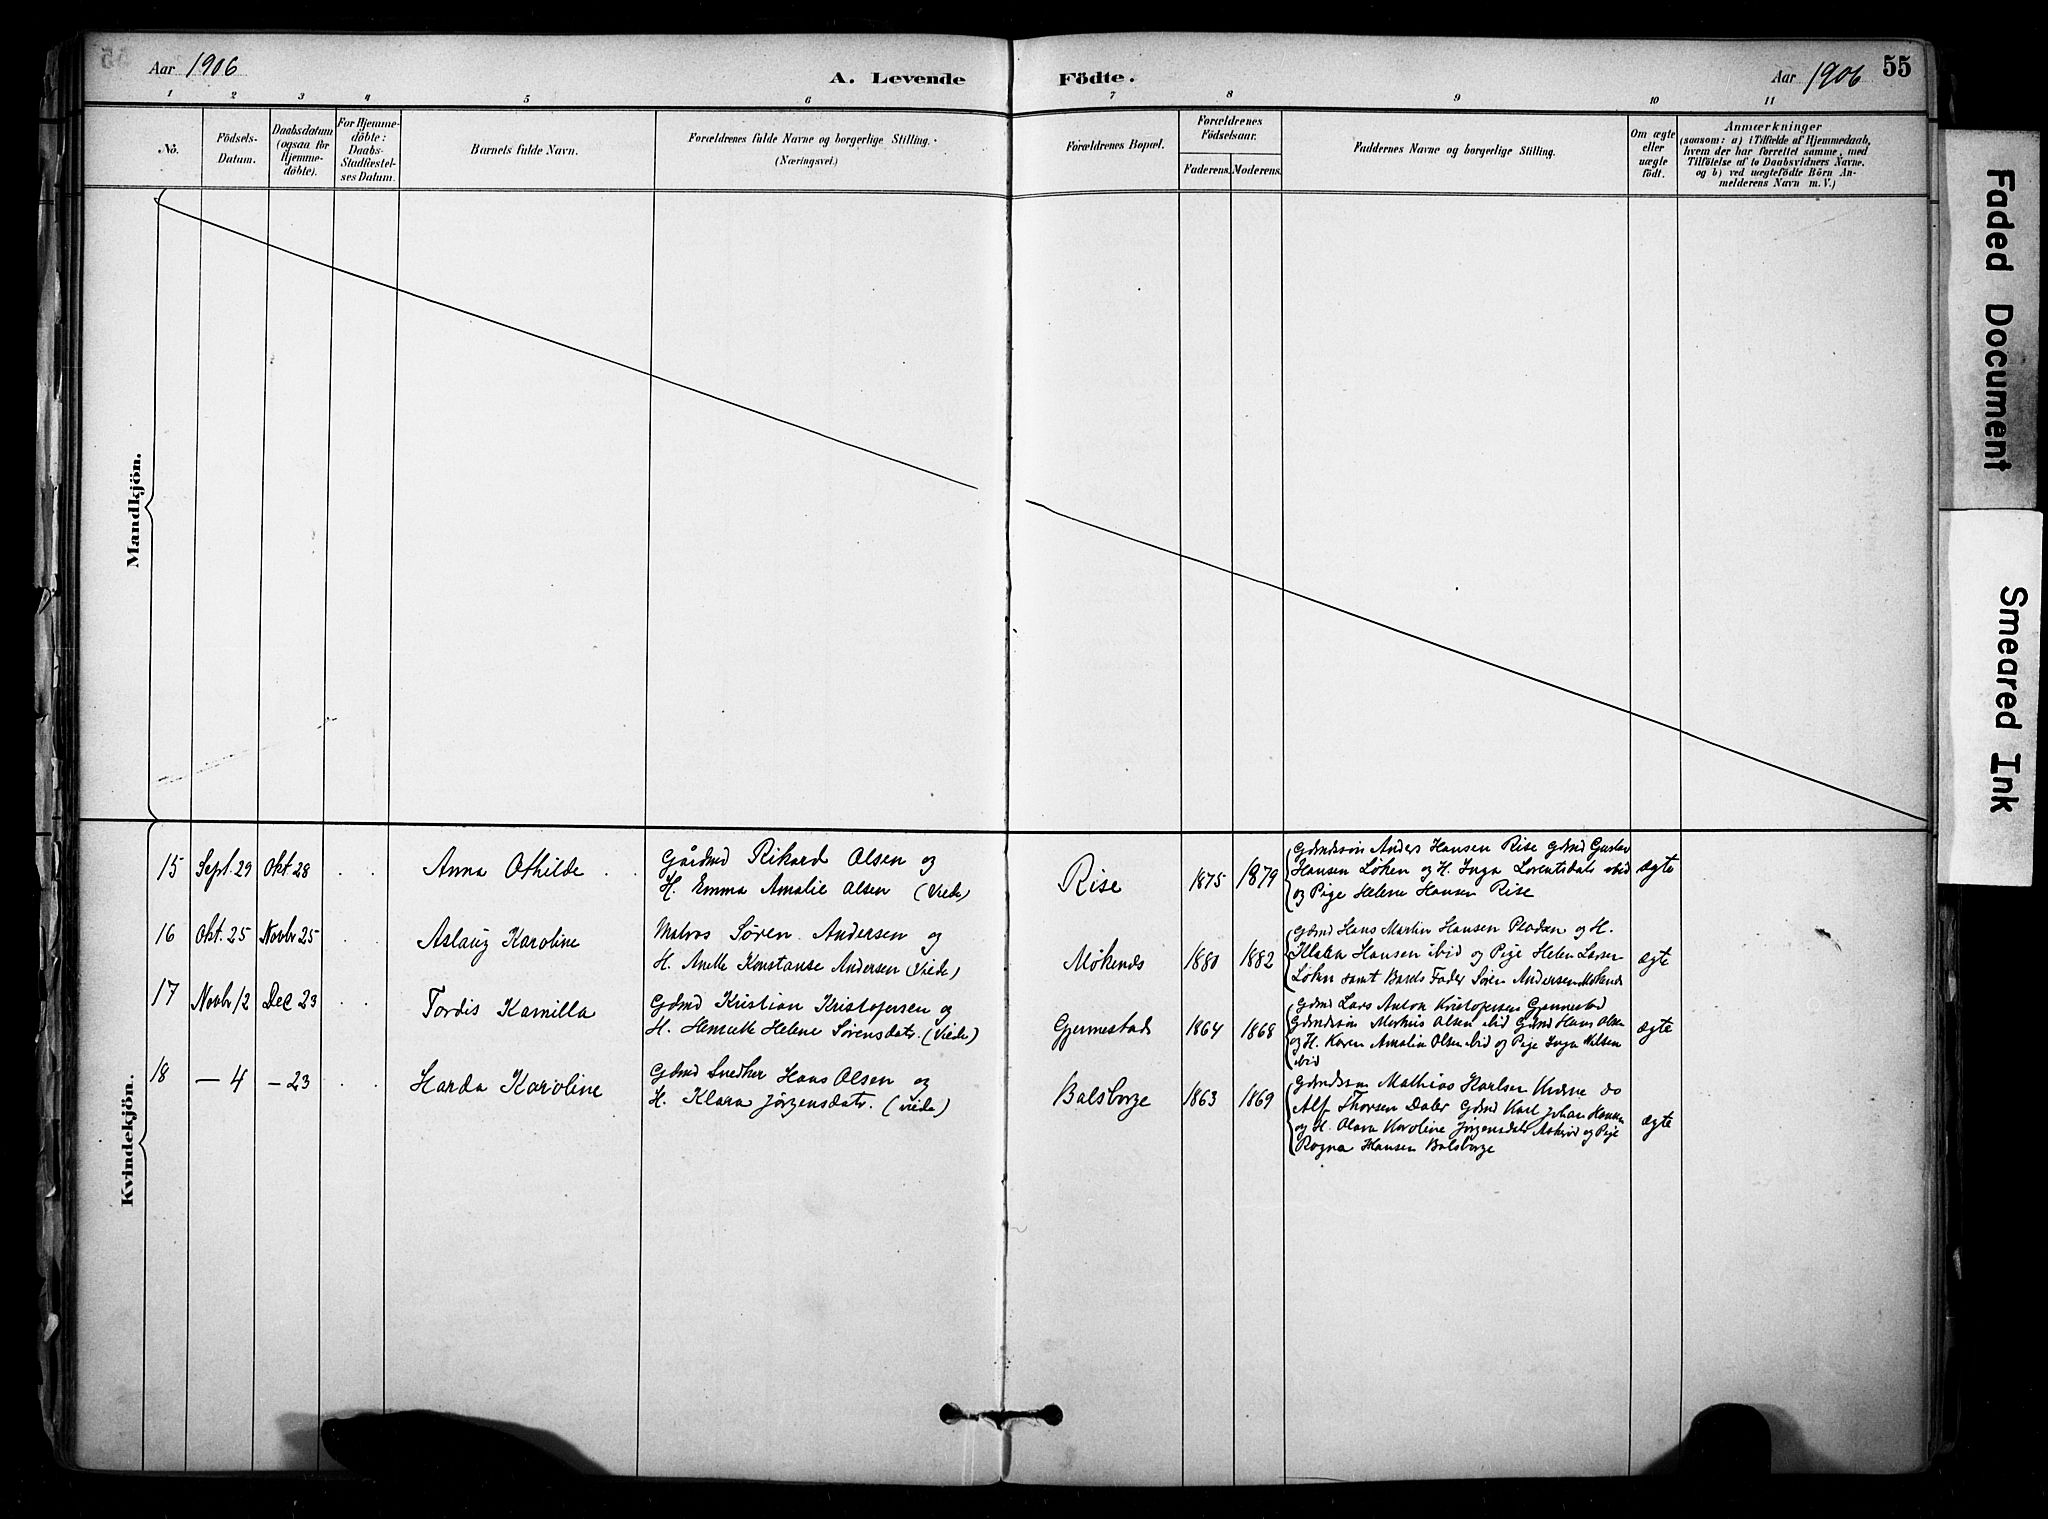 Aar 1906
A. Levende
Födte.
Aar 1906
55
1 2 3 4 5 6 7 8 9 10 11
No.
Födsels-
Datum.
Daabsdatum
(ogsaa for
Hjemme-
döbte).
For Hjemme-
döbte:
Daabs-
Stadfæstel-
ses Datum.
Barnets fulde Navn.
Forældrenes fulde Navne og borgerlige Stilling.
(Næringsvei.)
Forældrenes Bopæl.
Forældrenes
Födselsaar.
Faderens. Moderens.
Faddernes Navne og borgerlige Stilling.
Om ægte
eller
uægte
födt.
Anmærkninger
(saasom: a) i Tilfælde af Hjemmedaab,
hvem der har forrettet samme, med
Tilföielse af to Daabsvidners Navne.
og b) ved uægtefödte Börn An-
melderens Navn m. V.)
Mandkjön.
Kvindekjön.
15 Sept. 29 Okt 28 Anna Othilde
Gårdmd Rikard Olsen og
H. Emma Amalie Olsen (Viede)
Rise 1875 1879
Gdmdssøn Anders Hansen Rise Gdmd Gustav
Hansen Løken og H. Inga Lorentsdatr ibid
og Pige Helene Hansen Rise
ægte
16 Okt. 25 Novbr 25 Aslaug Karoline
Matros Søren Andersen og
H. Anette Konstanse Andersen (Viede)
Møkenes 1880 1882
Gdmd Hans Martin Hansen og H.
Hansen ibid og Pige Helen Larsen
Løken samt Barnets Fader Søren Andersen Møkenes
ægte
17 Novbr 12 Dec 23 Tordis Kamilla
Gdmd Kristian Kristofersen og
H. Hensette Helene Sørensdatr. (Viede)
Gjennestad 1864 1868
Gdmd Lars Anton Kristofersen Gjennestad
Gdmdssøn Markus Olsen ibid Gdmd Hans Olsen
og H. Karen Amalia Olsen ibid og Pige Inga Nilsen
ibid
ægte
18 — 4 — 23 Harda Karoline
Gdmd Snedker Hans Olsen og
H. Klara Jørgensdatr. (viede)
Balsborge 1863 1869
Gdmdssøn Mathias Karlsen do
Alf Thorsen Daler Gdmd Karl Johan
og H. Olava Karoline Jørgensdatr og Pige
Ragna Hansen Balsborge
ægte
Faded Document
Smeared Ink